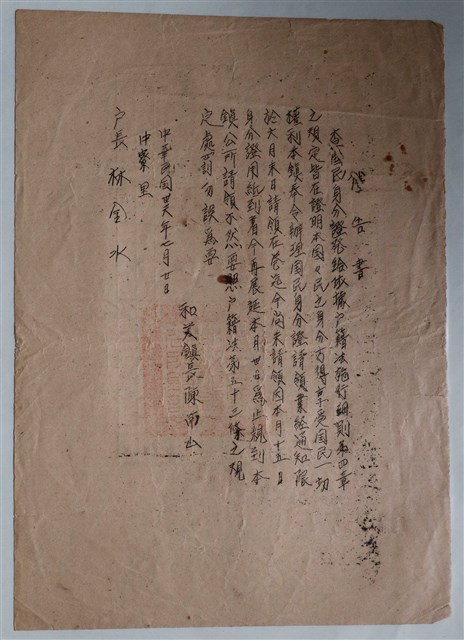 催告書
查國民身分證發給依據戶籍法施行細則第四章
之規定皆在證明本国々民之身分方得享受国民一切
權利本鎮奉令辦理国民身分證請領業経通知限
於六月末日請領在卷迄今尚未請領因本月十五日
身分證用紙到着今再展延本月廿五日為止親到本
鎮公所請領不然要照户籍法第五十三條之規
定處罰勿誤為要
和美鎮長陳
中華民国卅六年七月廿日
中寮里
户長 林金水